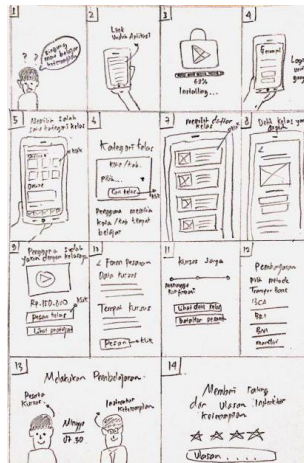 1
? ?
bingung
mau belajar
keterampilan
2
Link
Unduh Aplikasi
3
63%
Installing...
4
5
Memilih salah
satu kategori kelas
klik
Online
6
Kategori kelas
Kota/Kab.
Pilih...
Cari kelas
klik
Pengguna memilih
kota/kab tempat
belajar
7
memilih daftar
kelas
8
Detil kelas yang
9
dengan
Rp.150.000
Pesan kelas
klik
Lihat
10
< Form Pesanan
Data Kursus
Tempat Kursus
Pesan
klik
11
Kursus Saya
Menunggu
Konfirmasi
12
Pembayaran
Pilih metode
Transfer Bank
BCA
BRI
BNI
mandiri
13
Melakukan Pembelajaran
Peserta
Kursus
Minggu
07.30
Instruktur
Keterampilan
14
Memberi rating
dan Ulasan Instruktur
keterampilan
Ulasan . . . .